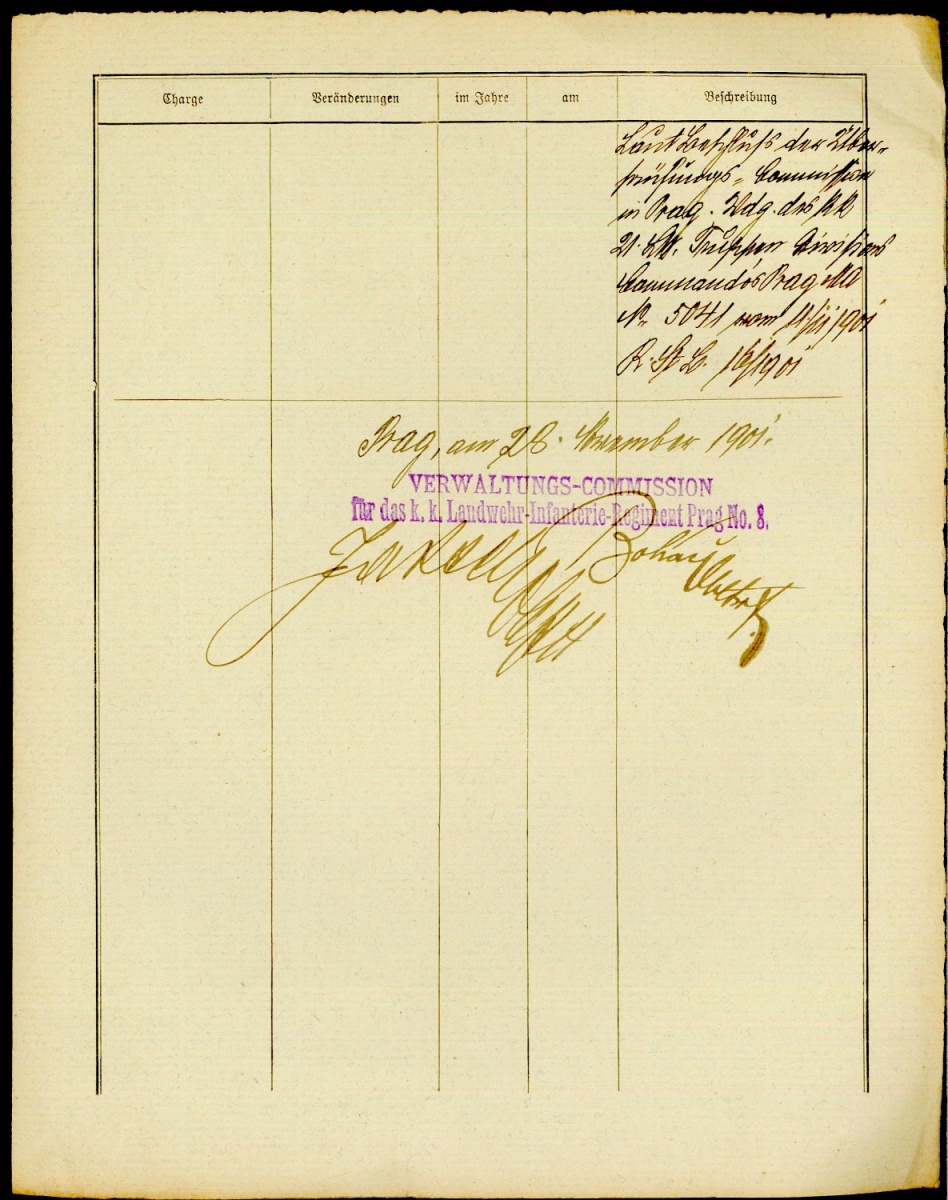 Charge Veränderungen im Jahre am Beschreibung
Laut Beschluss der Über-
prüfungs-Commission
in Prag. Vdg. des KK
21. Lw. Truppen Divisions
Commando's Prag MA
Nr 5041 vom 11/11 1901
R. St. B. 16/1901
Prag, am 28. November 1901.
VERWALTUNGS-COMMISSION
für das k. k. Landwehr-Infanterie-Regiment Prag No. 8.